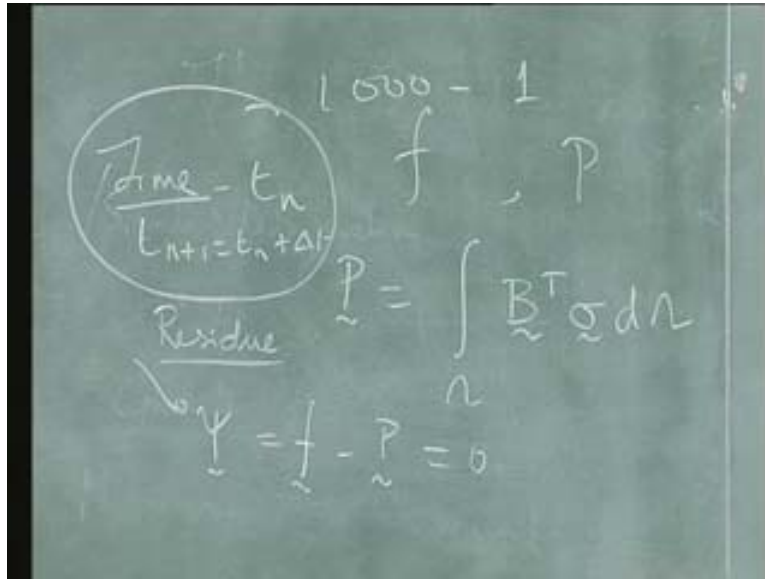 1000 - 1
f , P
Time - tₙ
tₙ₊₁ = tₙ + Δt
P = ∫_Ω Bᵀ σ dΩ
Residue
ψ = f - P = 0